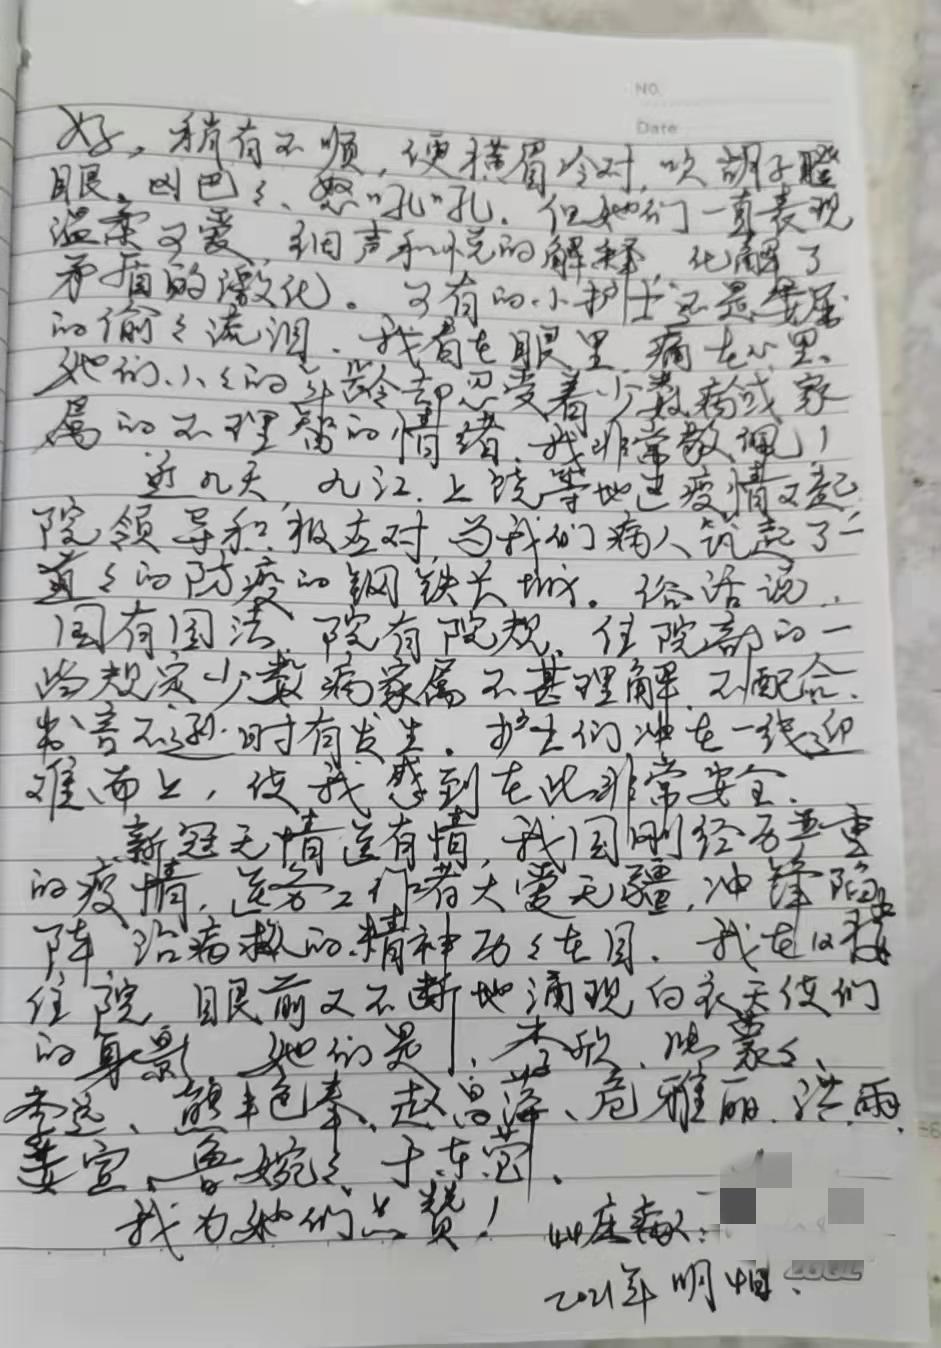 NO.
Date
好，稍有不顺，便横眉冷对，吹胡子瞪
眼。凶巴々、怒"孔"孔。但她们一直表现
温柔可爱，细声和悦的解释，化解了
矛盾的激化。可有的小护士还是委屈
的偷々流泪。我看在眼里，痛在心里。
她们小々的年龄却忍受着少数病或家
属的不理智的情绪，我非常敬佩！
近几天，九江、上饶等地过疫情又起，
院领导积极应对，为我们病人筑起了一
道々的防疫的钢铁长城。俗话说，
国有国法，院有院规，住院部的一
些规定少数病家属不甚理解，不配合，
出言不逊时有发生。护士们冲在一线迎
难而上，使我感到在此非常安全。
新冠无情医有情，我国刚经历严重
的疫情，医务工作者大爱无疆，冲锋陷
阵，治病救的精神历々在目。我在以
住院，眼前又不断地涌现白衣天使们
的身影，她们是、欣、蒙々、
李、熊、赵、危雅丽、洪雨、
姜宣、鲁婉々、于。
我为她们点赞！
床
2021年